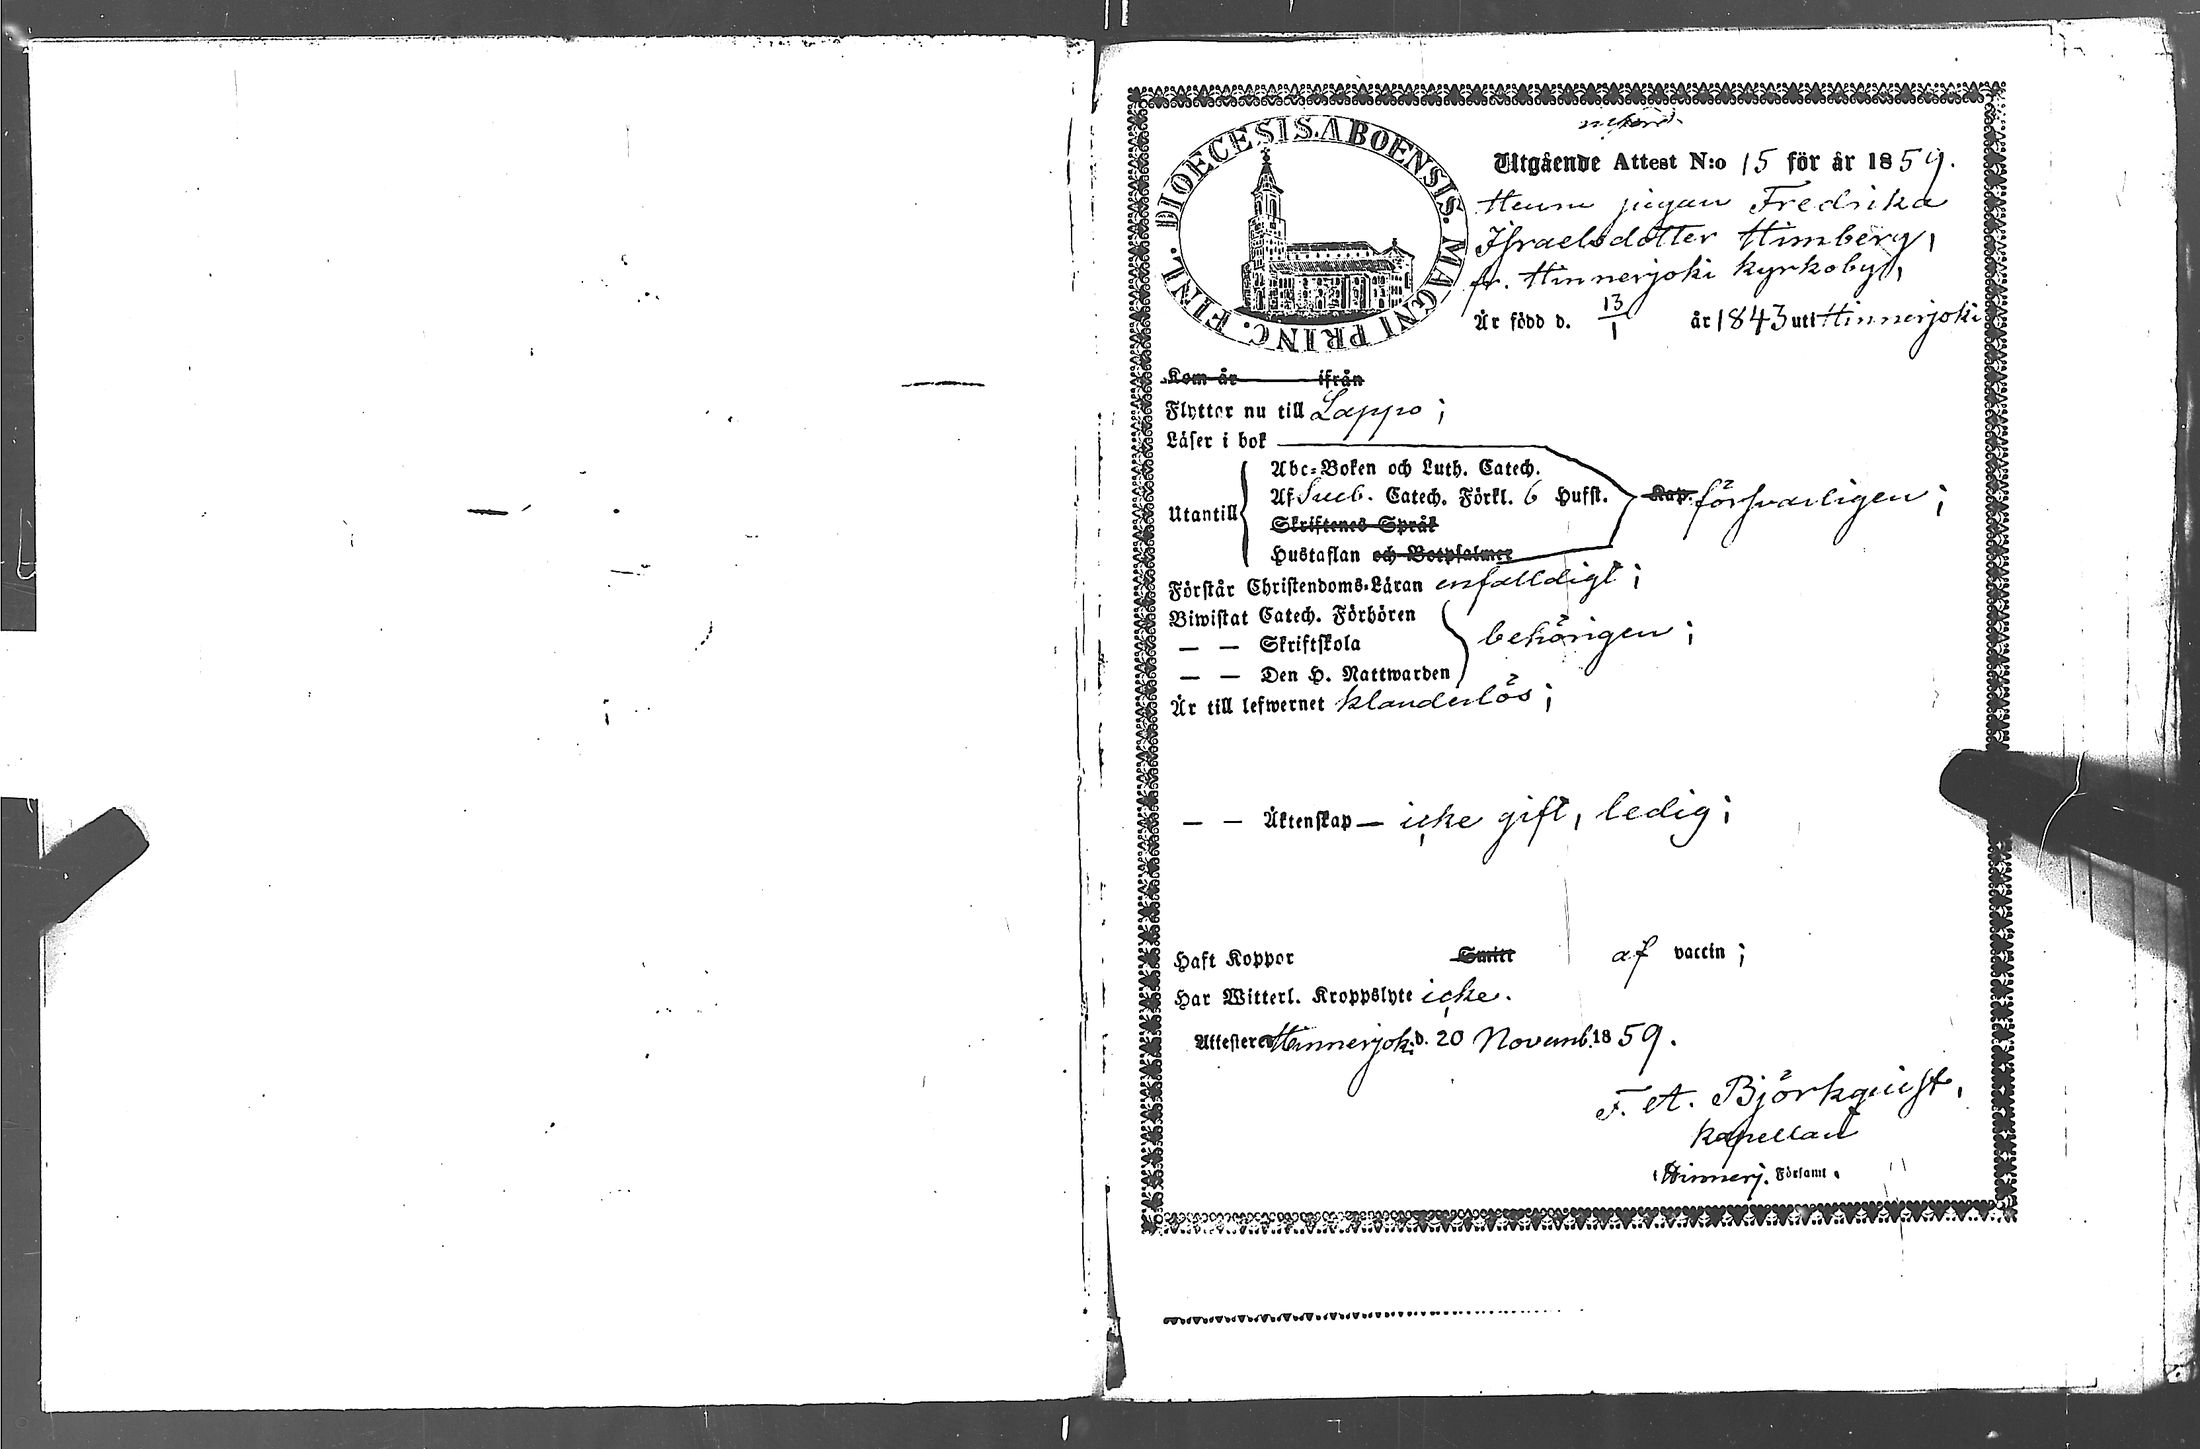 DIOECESIS. ABOENSIS. MAGNI PRINC. FINL.
Utgående Attest N:o 15 för år 1859.
pigan Fredrika
Israelsdotter Himberg,
fr. Hinnerjoki kyrkoby,
Är född d. 13/1 år 1843 uti Hinnerjoki
Kom år ifrån
Flyttar nu till Lappo;
Läser i bok
Abc-Boken och Luth. Catech.
Af Sveb. Catech. Förkl. 6 Hufst. Kap. försvarligen;
Utantill
Skriftenes Språk
Hustaflan och Botpsalmer
Förstår Christendoms-Läran enfalldigt;
Biwistat Catech. Förhören
— — Skriftskola behörigen;
— — Den H. Nattwarden
Är till lefwernet klanderlös;
— — Äktenskap — icke gift, ledig;
Haft Koppor Smitt af vaccin;
Har Witterl. Kroppslyte icke.
Attesteras Hinnerjoki d. 20 Novemb. 1859.
F. A. Björkqvist,
kapellan
Hinnerj. Församl.